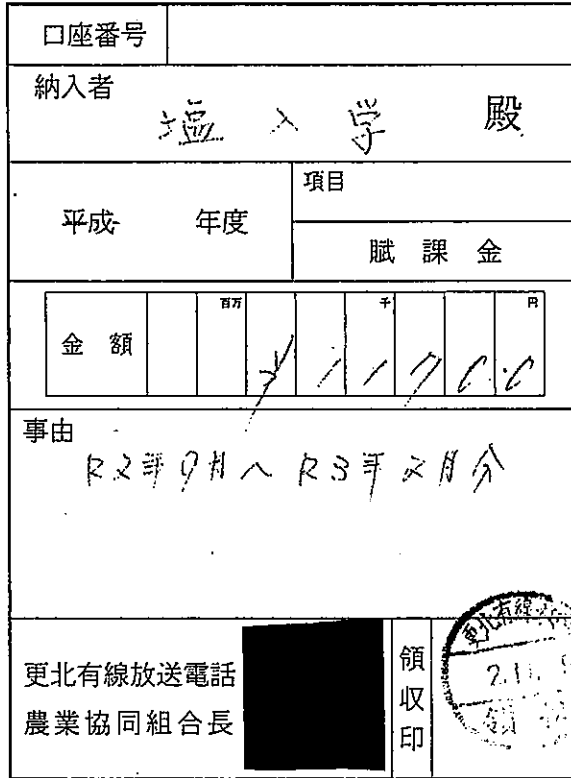 口座番号
納入者
塩入学 殿
平成 年度
項目
賦課金
金額
百万 千 円
¥11700
事由
R2年9月〜R3年2月分
更北有線放送電話
農業協同組合長
領収印
更北有線
2.11.
領